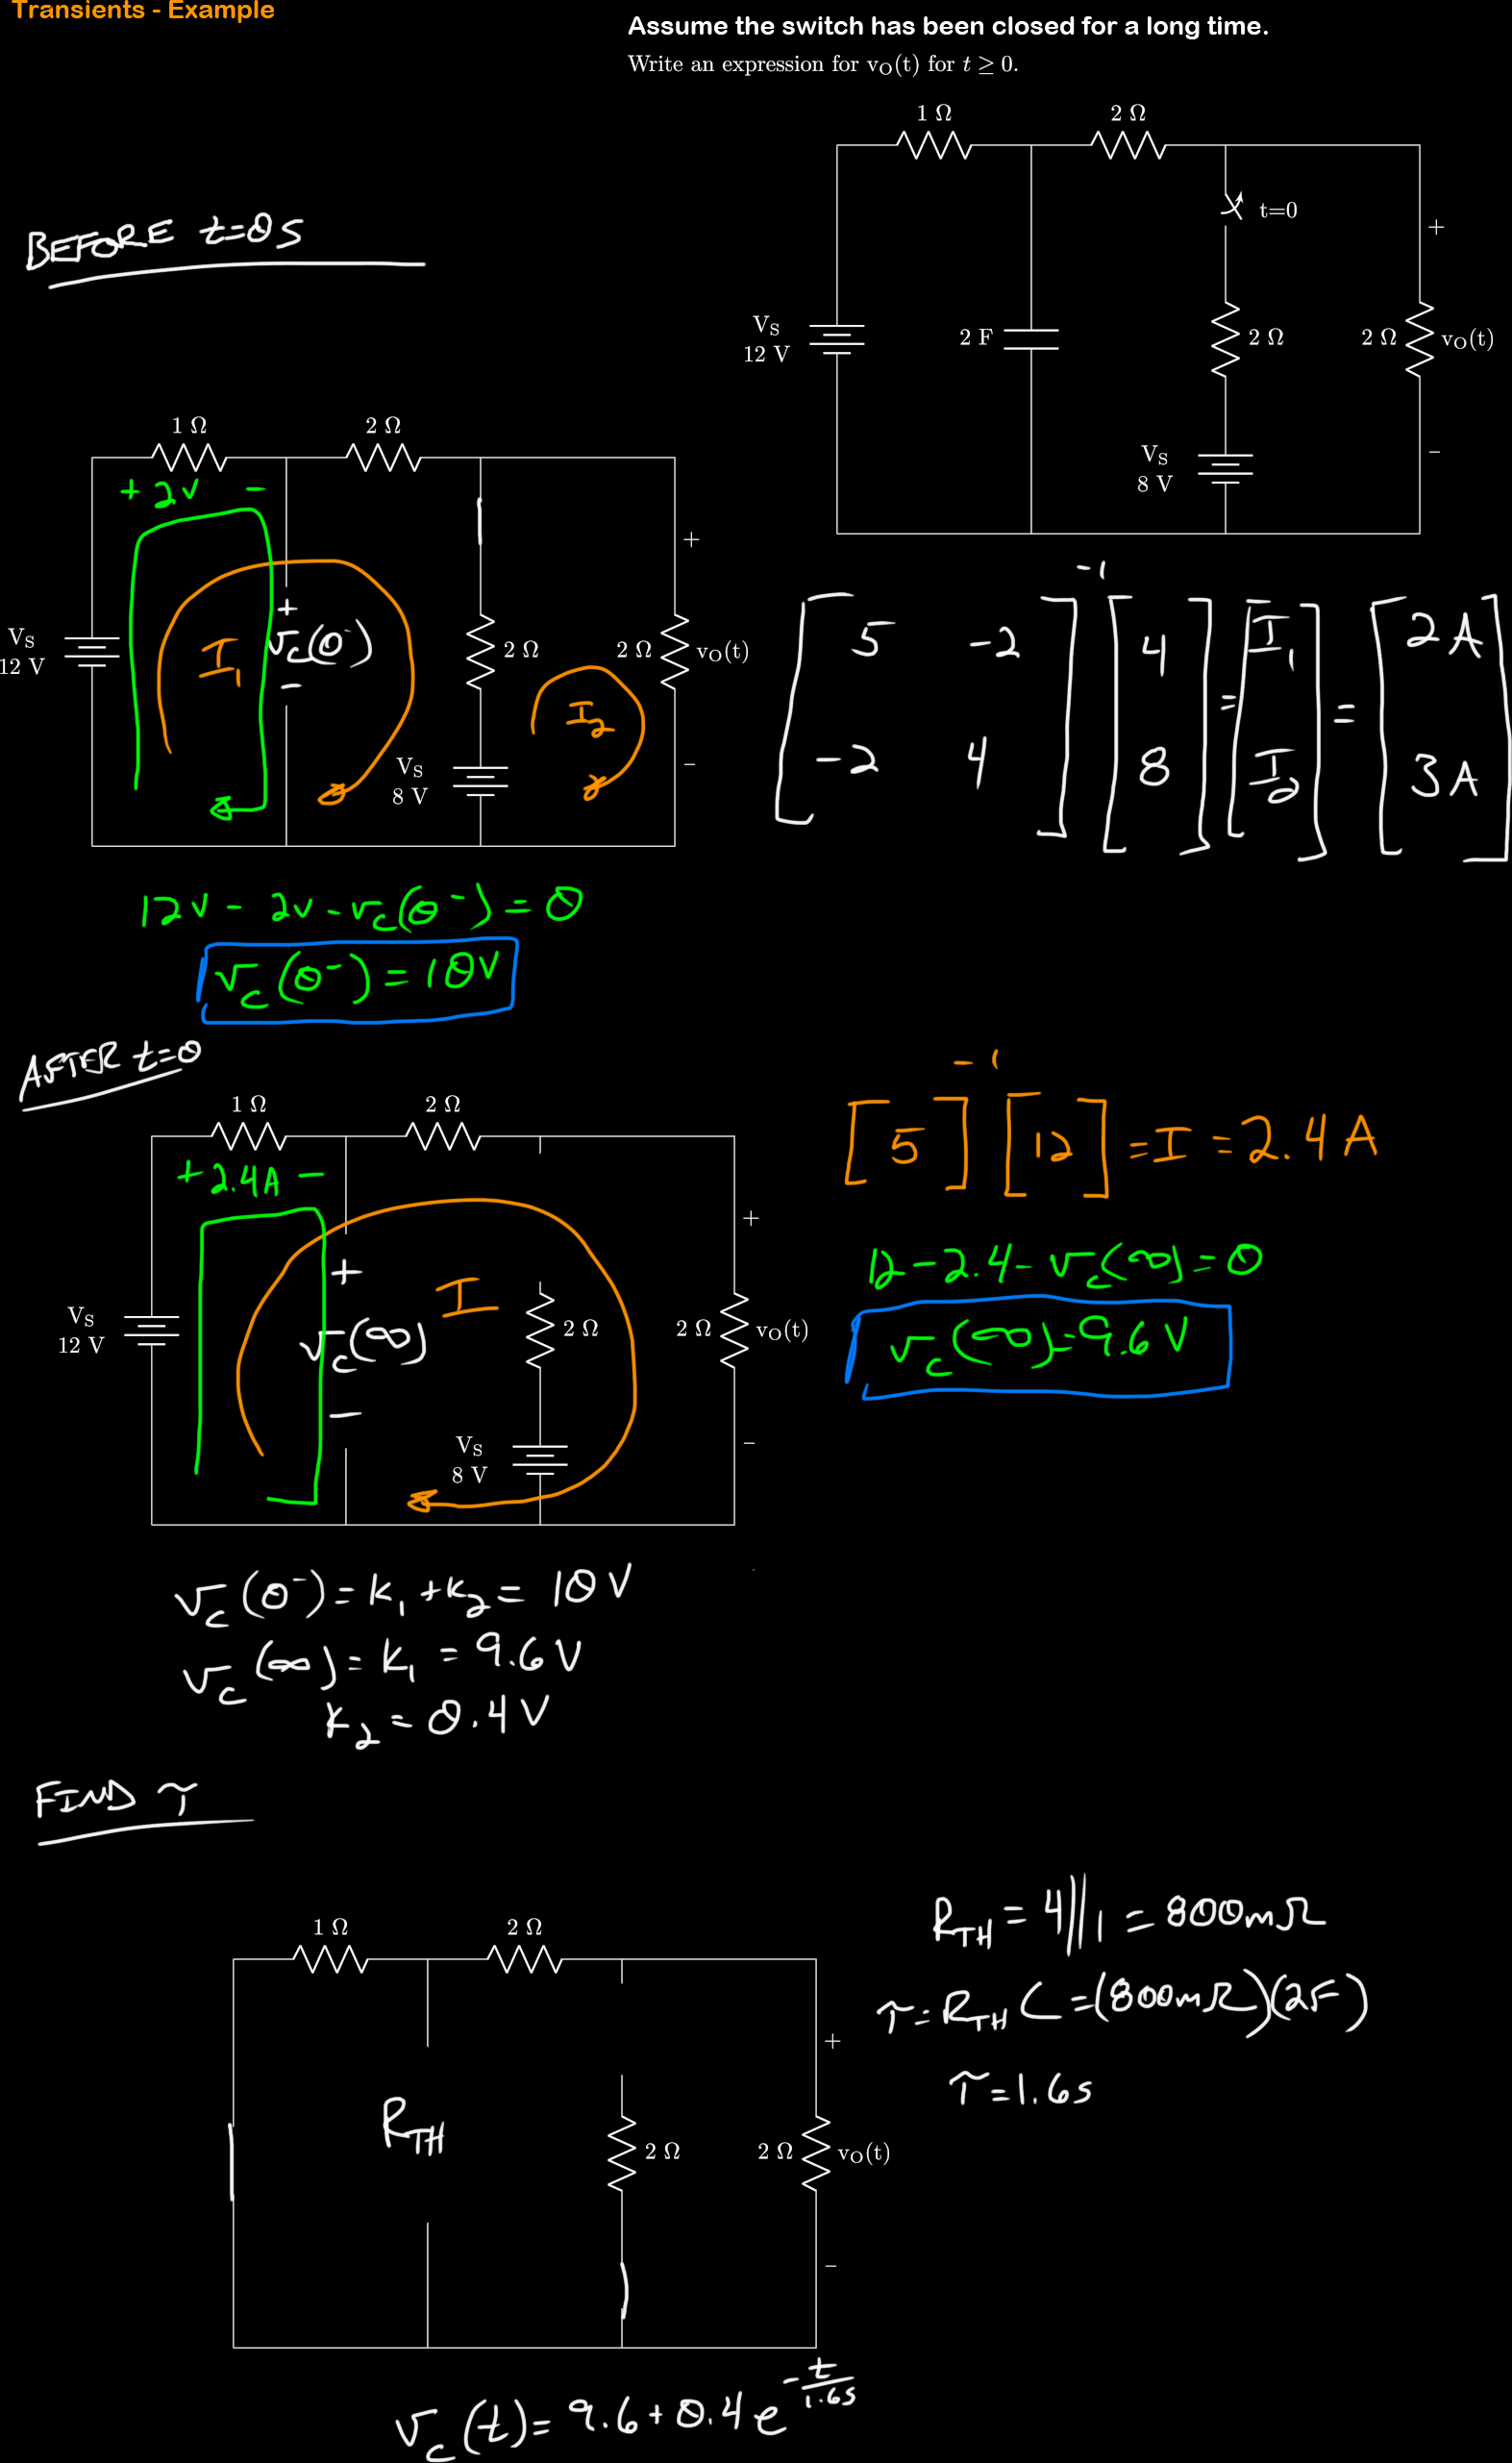 Transients - Example
Assume the switch has been closed for a long time.
Write an expression for vO(t) for t ≥ 0.
1 Ω 2 Ω
t=0
+
VS
12 V
2 F
2 Ω
2 Ω
vO(t)
VS
8 V
−
BEFORE t=0s
1 Ω 2 Ω
+ 2V -
+
+
VS
12 V
I1
vc(0-)
-
2 Ω
2 Ω
vO(t)
I2
VS
8 V
−
[5 -2
-2 4]-1 [4
8] = [I1
I2] = [2A
3A]
12V - 2V - vc(0-) = 0
vc(0-) = 10V
AFTER t=0
1 Ω 2 Ω
+ 2.4A -
+
+
I
VS
12 V
vc(∞)
-
2 Ω
2 Ω
vO(t)
VS
8 V
−
[5]-1 [12] = I = 2.4 A
12 - 2.4 - vc(∞) = 0
vc(∞) = 9.6 V
vc(0-) = k1 + k2 = 10V
vc(∞) = k1 = 9.6V
k2 = 0.4V
FIND τ
1 Ω 2 Ω
+
RTH
2 Ω
2 Ω
vO(t)
−
RTH = 4||1 = 800mΩ
τ = RTH C = (800mΩ)(2F)
τ = 1.6s
vc(t) = 9.6 + 0.4 e-t/1.6s